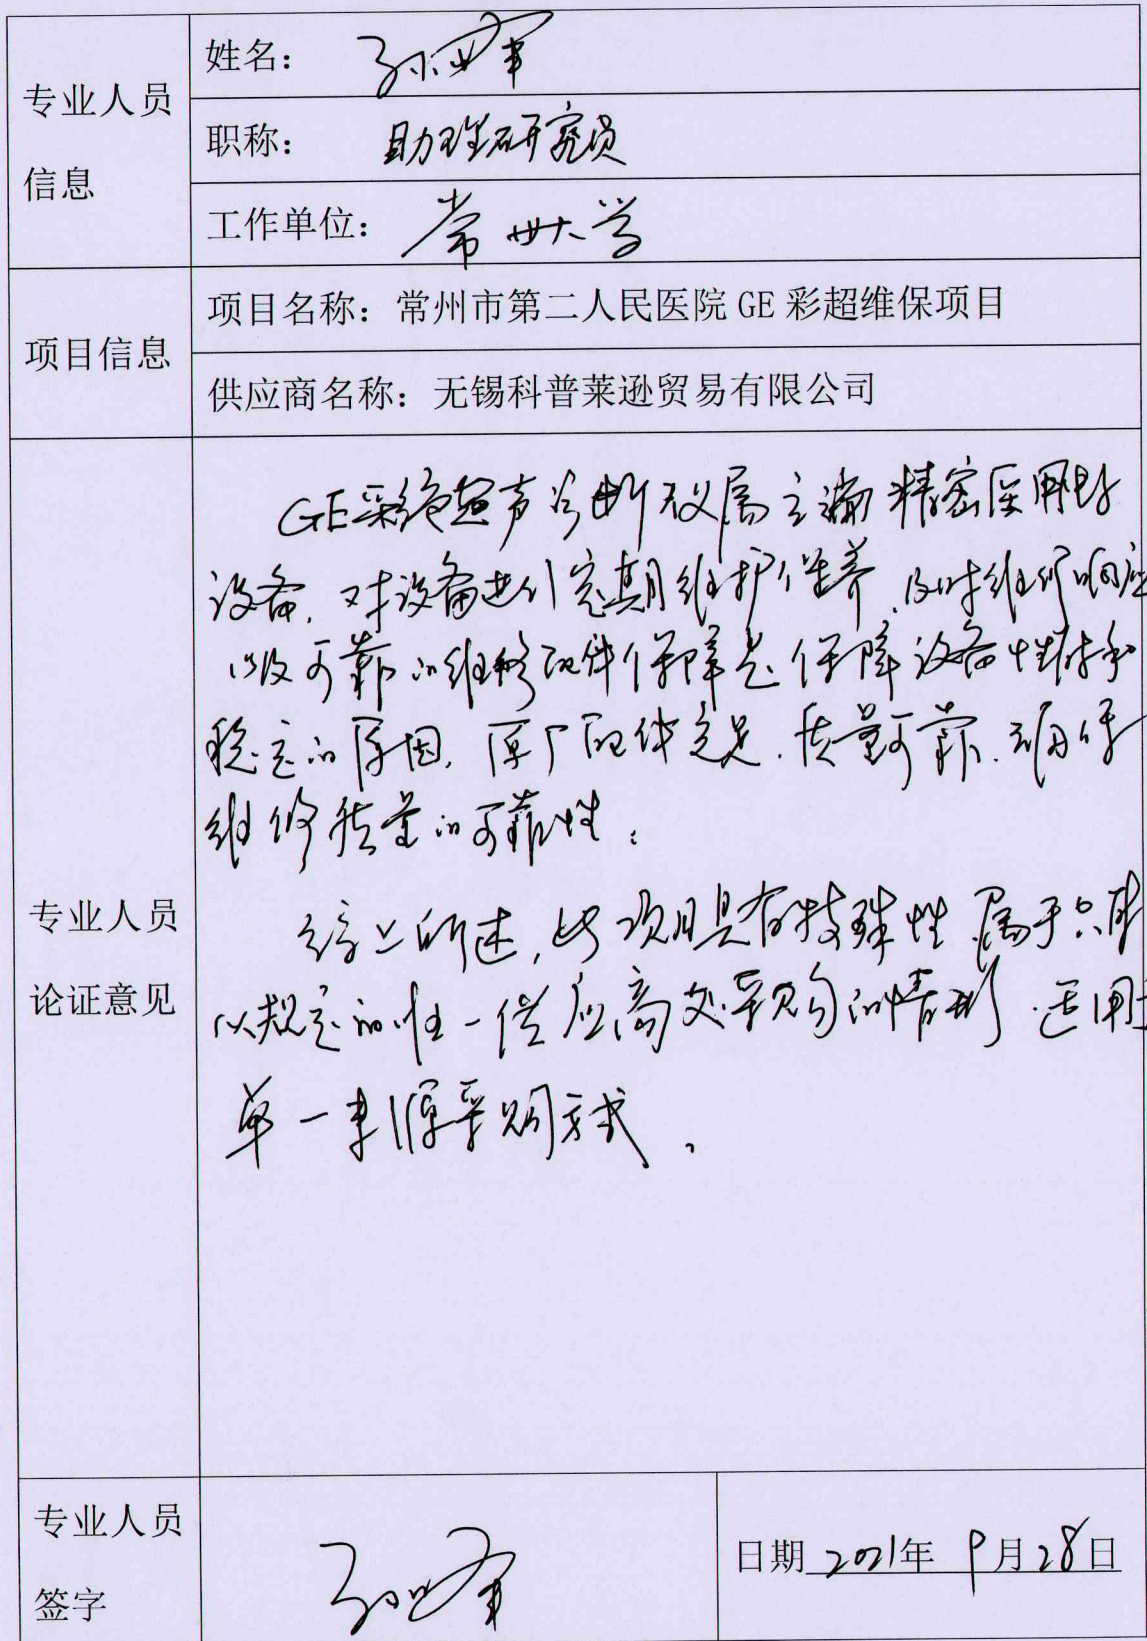 专业人员
信息
姓名：孙
职称：助理研究员
工作单位：常州大学
项目信息
项目名称：常州市第二人民医院 GE 彩超维保项目
供应商名称：无锡科普莱逊贸易有限公司
专业人员
论证意见
GE彩色超声诊断仪属高端精密医用
设备，对设备进行定期维护保养，及时维修响应
以及可靠的维修配件保障是保障设备性能和
稳定的原因，原厂配件充足，质量可靠，确保
维修质量的可靠性；
综上所述，此项目具有特殊性，属于只能
从规定的唯一供应商处采购的情形，适用
单一来源采购方式。
专业人员
签字
孙
日期 2021年 9月28日